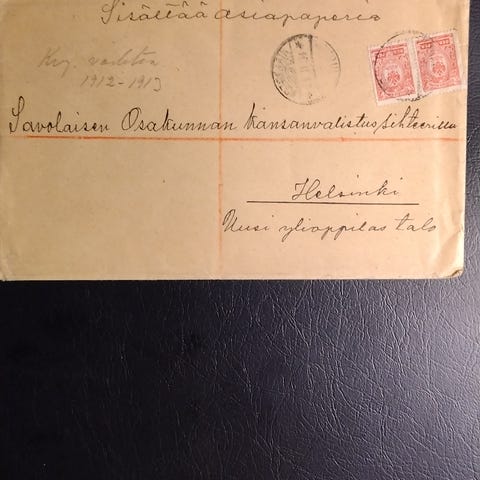 Sisältää asiapapereia
1912-1913
Savolaisen Osakunnan kansanvalistussihteerille
Helsinki
Uusi ylioppilas talo